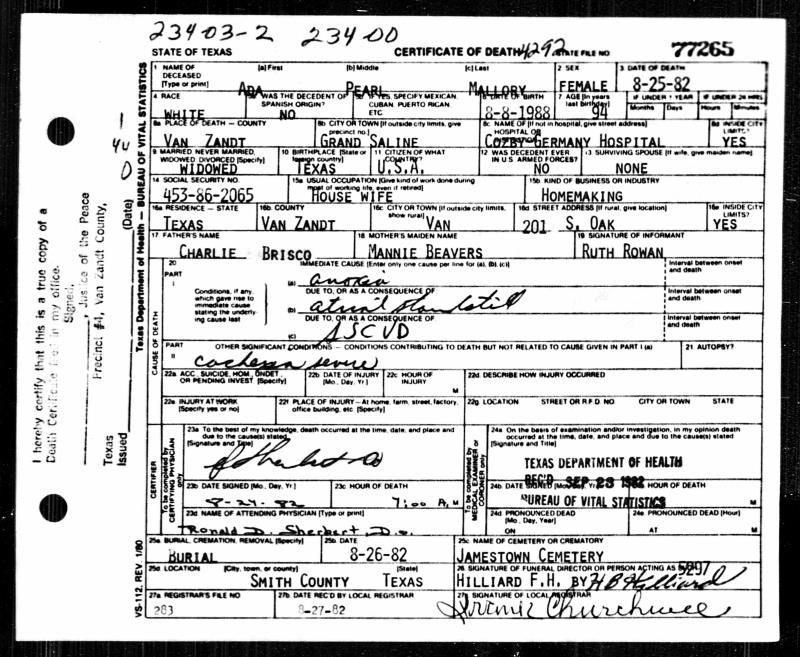 23403-2 23400
STATE OF TEXAS CERTIFICATE OF DEATH 4292 STATE FILE NO 77265
1 NAME OF DECEASED (Type or print) (a) First (b) Middle (c) Last 2 SEX 3 DATE OF DEATH
ADA PEARL MALLORY FEMALE 8-25-82
4. RACE 5 WAS THE DECEDENT OF SPANISH ORIGIN? IF YES, SPECIFY MEXICAN, CUBAN, PUERTO RICAN, ETC. 6 DATE OF BIRTH 7 AGE (In years last birthday) IF UNDER 1 YEAR Months Days IF UNDER 24 HRS Hours Minutes
WHITE NO 8-8-1988 94
8a PLACE OF DEATH - COUNTY 8b CITY OR TOWN (If outside city limits, give precinct no.) 8c NAME OF (If not in hospital, give street address) HOSPITAL OR 8d INSIDE CITY LIMITS?
VAN ZANDT GRAND SALINE COZBY GERMANY HOSPITAL YES
9 MARRIED, NEVER MARRIED, WIDOWED, DIVORCED (Specify) 10 BIRTHPLACE (State or foreign country) 11 CITIZEN OF WHAT COUNTRY? 12 WAS DECEDENT EVER IN U S ARMED FORCES? 13 SURVIVING SPOUSE (If wife, give maiden name)
WIDOWED TEXAS U.S.A. NO NONE
14 SOCIAL SECURITY NO. 15a USUAL OCCUPATION (Give kind of work done during most of working life, even if retired) 15b KIND OF BUSINESS OR INDUSTRY
453-86-2065 HOUSE WIFE HOMEMAKING
16a RESIDENCE - STATE 16b COUNTY 16c CITY OR TOWN (If outside city limits, show rural) 16d STREET ADDRESS (If rural, give location) 16e INSIDE CITY LIMITS?
TEXAS VAN ZANDT VAN 201 S. OAK YES
17 FATHER'S NAME 18 MOTHER'S MAIDEN NAME 19 SIGNATURE OF INFORMANT
CHARLIE BRISCO MANNIE BEAVERS RUTH ROWAN
20 IMMEDIATE CAUSE (Enter only one cause per line for (a), (b), (c)) Interval between onset and death
PART I
(a) anoxia
Conditions, if any, which gave rise to immediate cause stating the underlying cause last
DUE TO, OR AS A CONSEQUENCE OF Interval between onset and death
(b) atrial standstill
DUE TO, OR AS A CONSEQUENCE OF Interval between onset and death
(c) ASCVD
CAUSE OF DEATH
PART II OTHER SIGNIFICANT CONDITIONS - CONDITIONS CONTRIBUTING TO DEATH BUT NOT RELATED TO CAUSE GIVEN IN PART I (a) 21 AUTOPSY?
22a ACC, SUICIDE, HOM, UNDET, OR PENDING INVEST (Specify) 22b DATE OF INJURY (Mo., Day, Yr) 22c HOUR OF INJURY M 22d DESCRIBE HOW INJURY OCCURRED
22e INJURY AT WORK (Specify yes or no) 22f PLACE OF INJURY - At home, farm, street, factory, office building, etc (Specify) 22g LOCATION STREET OR R.F.D. NO CITY OR TOWN STATE
CERTIFIER
To be completed by CERTIFYING PHYSICIAN only
23a To the best of my knowledge, death occurred at the time, date, and place and due to the cause(s) stated.
(Signature and Title)
To be completed by MEDICAL EXAMINER or CORONER only
24a On the basis of examination and/or investigation, in my opinion death occurred at the time, date, and place and due to the cause(s) stated
(Signature and Title)
TEXAS DEPARTMENT OF HEALTH
REC'D SEP 23 1982
BUREAU OF VITAL STATISTICS
23b DATE SIGNED (Mo., Day, Yr) 23c HOUR OF DEATH 24b DATE SIGNED (Mo., Day, Yr) HOUR OF DEATH
8-27-82 7:00 A. M M
23d NAME OF ATTENDING PHYSICIAN (Type or print) 24d PRONOUNCED DEAD (Mo., Day, Year) 24e PRONOUNCED DEAD (Hour)
Ronald D. Sherbert, D.o. ON AT M
25a BURIAL, CREMATION, REMOVAL (Specify) 25b DATE 25c NAME OF CEMETERY OR CREMATORY
BURIAL 8-26-82 JAMESTOWN CEMETERY
25d LOCATION (City, town, or county) (State) 26 SIGNATURE OF FUNERAL DIRECTOR OR PERSON ACTING AS SUCH 5297
SMITH COUNTY TEXAS HILLIARD F.H. BY H B Hilliard
27a REGISTRAR'S FILE NO 27b DATE REC'D BY LOCAL REGISTRAR 27c SIGNATURE OF LOCAL REGISTRAR
283 8-27-82 Churchwell
VS-112, REV. 1/80 Texas Department of Health - BUREAU OF VITAL STATISTICS
1
40
0
I hereby certify that this is a true copy of a
Death Certificate filed in my office.
Signed,
, Justice of the Peace
Precinct #4, Van Zandt County,
Texas
Issued (Date)